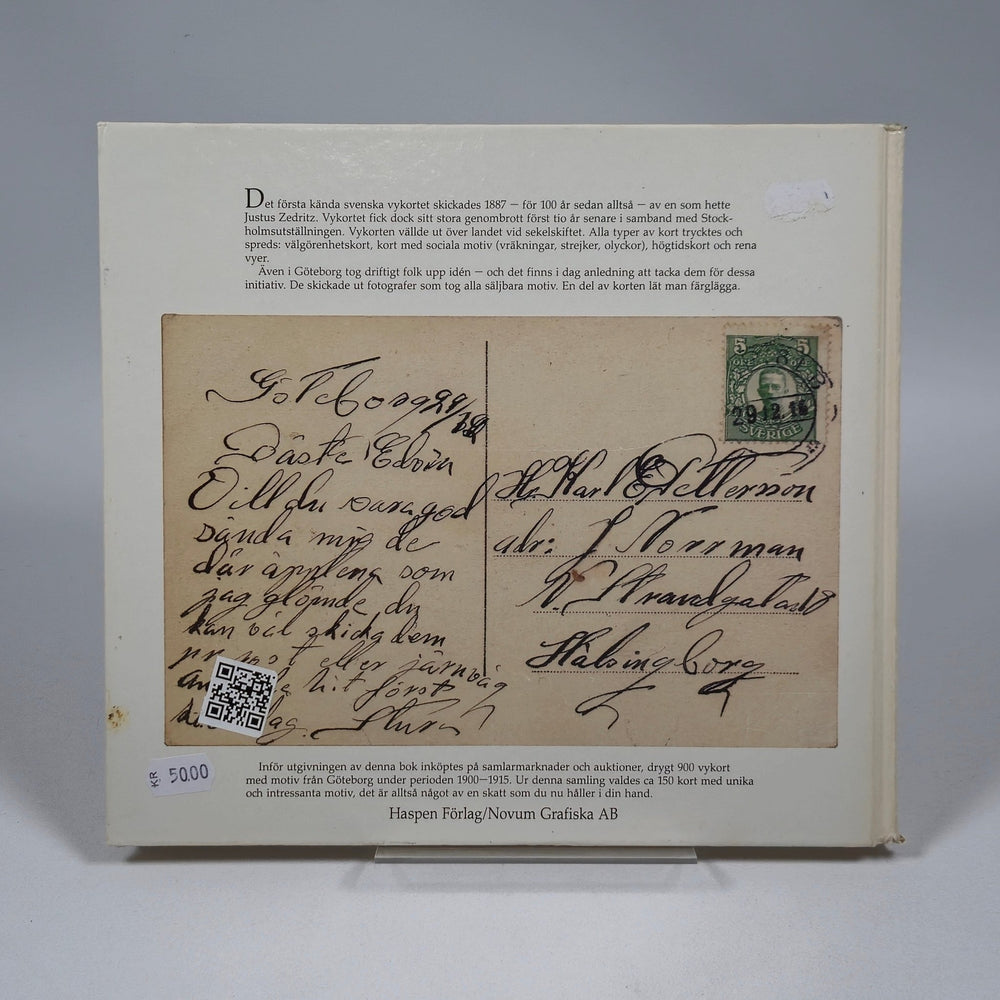 Det första kända svenska vykortet skickades 1887 – för 100 år sedan alltså – av en som hette
Justus Zedritz. Vykortet fick dock sitt stora genombrott först tio år senare i samband med Stock-
holmsutställningen. Vykorten vällde ut över landet vid sekelskiftet. Alla typer av kort trycktes och
spreds: välgörenhetskort, kort med sociala motiv (vräkningar, strejker, olyckor), högtidskort och rena
vyer.
Även i Göteborg tog driftigt folk upp idén – och det finns i dag anledning att tacka dem för dessa
initiativ. De skickade ut fotografer som tog alla säljbara motiv. En del av korten lät man färglägga.
Göteborg 29/12
Bästa Edvin
Vill du vara god
sända mig de
där äpplena som
jag glömde, du
kan väl skicka dem
pr post eller järnväg
hit först
Sture
5 5
SVERIGE
29.12.
H. Karl E Petterson
adr: J Norrman
N. Strandgatan 18
Hälsingborg
KR 50.00
Inför utgivningen av denna bok inköptes på samlarmarknader och auktioner, drygt 900 vykort
med motiv från Göteborg under perioden 1900–1915. Ur denna samling valdes ca 150 kort med unika
och intressanta motiv, det är alltså något av en skatt som du nu håller i din hand.
Haspen Förlag/Novum Grafiska AB